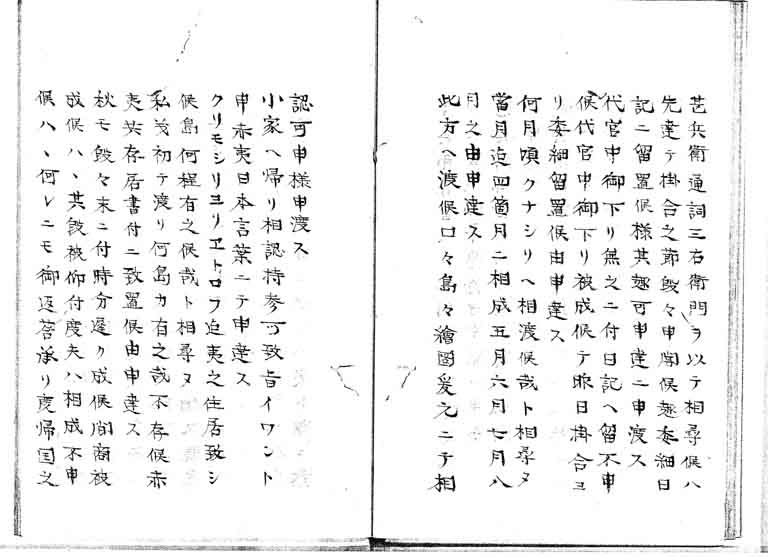 芝兵衛通詞三右衛門ヲ以テ相尋候ハ
先達テ掛合之節段々申聞候趣委細日
記ニ留置候様其趣可申達ニ申渡ス
代官中御下リ無之ニ付日記ヘ留不申
候代官中御下リ被成候テ昨日掛合ヨ
リ委細留置候由申達ス
何月頃クナシリヘ相渡候哉ト相尋タ
當月迄四箇月ニ相成五月六月七月八
月之由申達ス
此方ヘ渡候口々島々繪圖爰元ニテ相
認可申様申渡ス
小家ヘ帰リ相認持参可致旨イワント
申赤夷日本言葉ニテ申達ス
クリモシリヨリヱトロフ迄夷之住居致シ
候島何程有之候哉ト相尋ヌ
私義初テ渡リ何島カ有之哉不存候赤
夷共存居書付ニ致置候由申達ス
秋モ段々末ニ付時分遅ク成候間商被
成候ハ、其段被仰付度夫ハ相成不申
候ハ、何レニモ御返荅承リ度帰国之